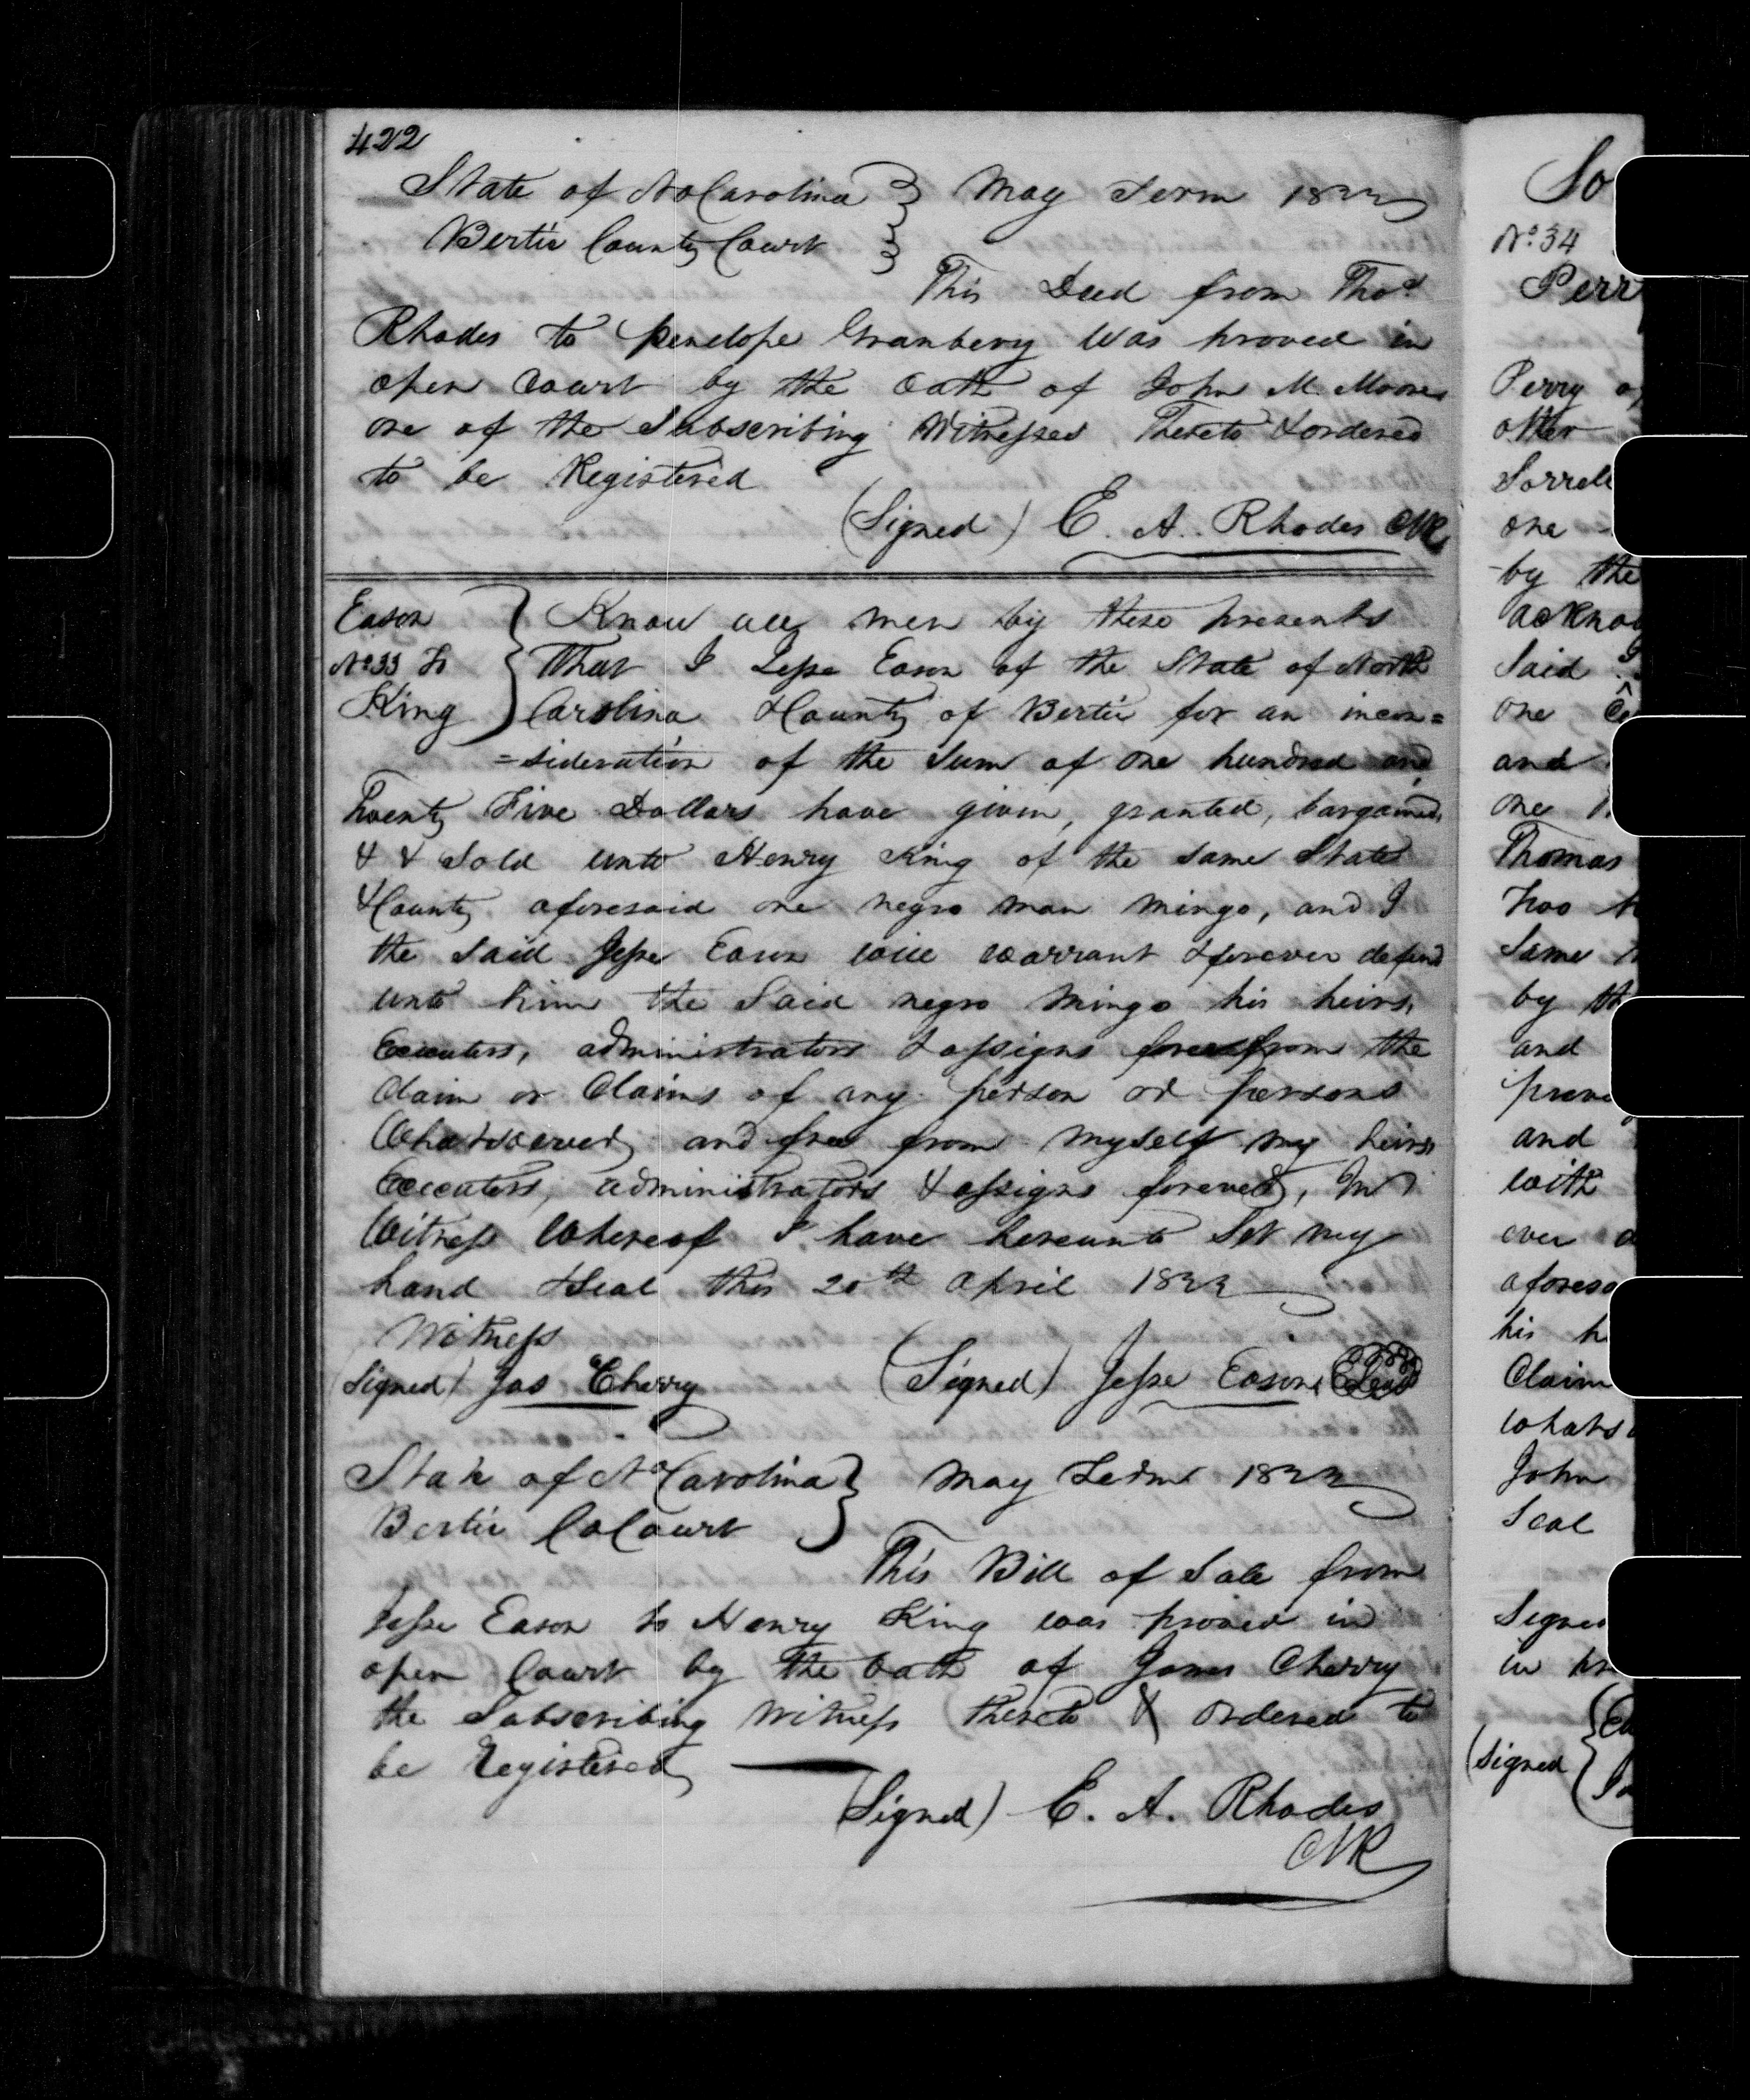 422
State of No Carolina } May Term 1833
Bertie County Court }
This Deed from Thos
Rhodes to Penelope Granbery was proved in
open Court by the oath of John M. Moore
one of the Subscribing Witnesses Thereto & ordered
to be Registered
(Signed) E. A. Rhodes Clk
Eason } Know all men by these presents
No 33 To } That I Jesse Eason of the State of North
King } Carolina & County of Bertie for an incon=
=sideration of the Sum of one hundred and
Twenty Five Dollars have given, granted, bargained,
& & Sold unto Henry King of the same State
& County aforesaid one negro man mingo, and I
the said Jesse Eason will warrant & forever defend
unto him the Said negro mingo his heirs,
Executors, administrators & assigns from the
Claim or Claims of any person or persons
Whatsoever, and free from myself my heirs,
Executors, administrators & assigns forever, In
Witness Whereof I have hereunto Set my
hand & Seal this 20th April 1833
Witness
(Signed) Jas Cherry (Signed) Jesse Eason Seal
State of No Carolina } May Term 1833
Bertie Co Court }
This Bill of Sale from
Jesse Eason to Henry King was proved in
open Court by the oath of James Cherry
the Subscribing Witness thereto & ordered to
be Registered
(Signed) E. A. Rhodes
Clk
So
No. 34
Perr
Perry
other
Sorrele
one
by the
acknow
Said
one
and
one
Thomas
Two
Same
by th
and
prov
and
with
ever
aforesa
his h
Claim
whats
John
Seal
Signed
in
(Signed